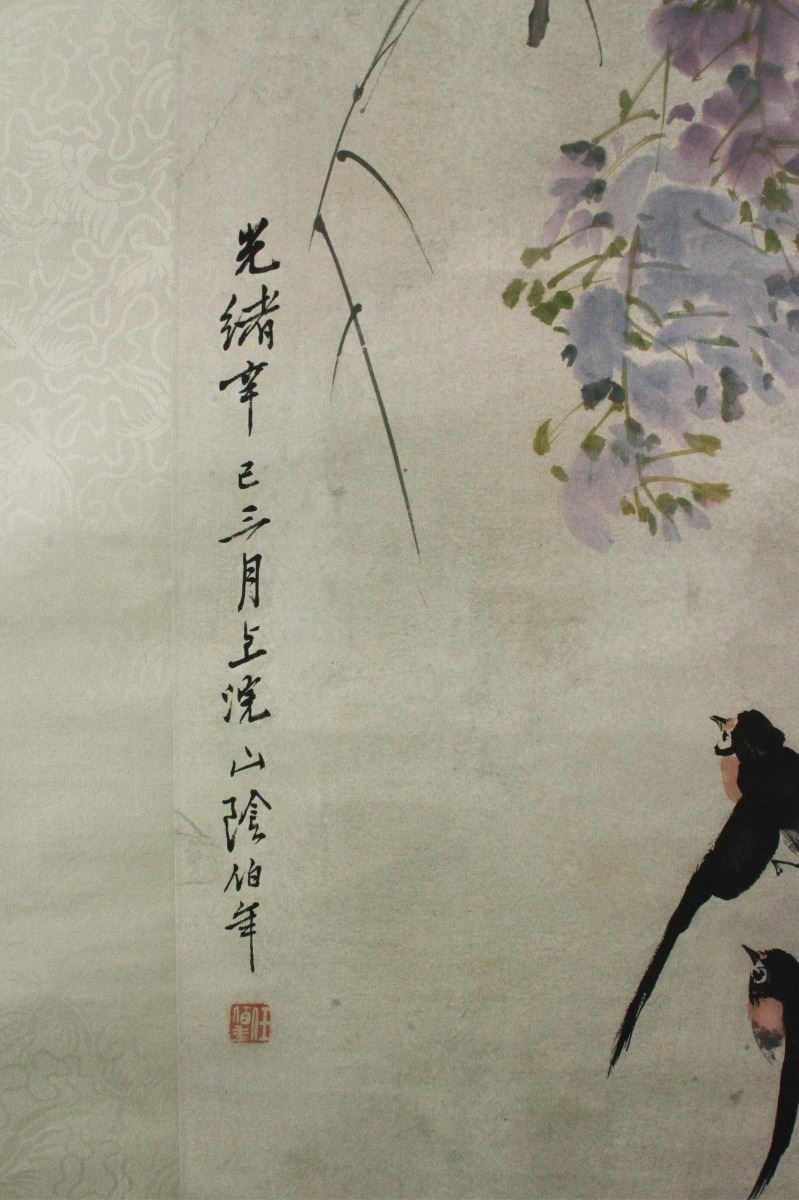 光緒辛巳三月上浣山陰伯年
任伯年